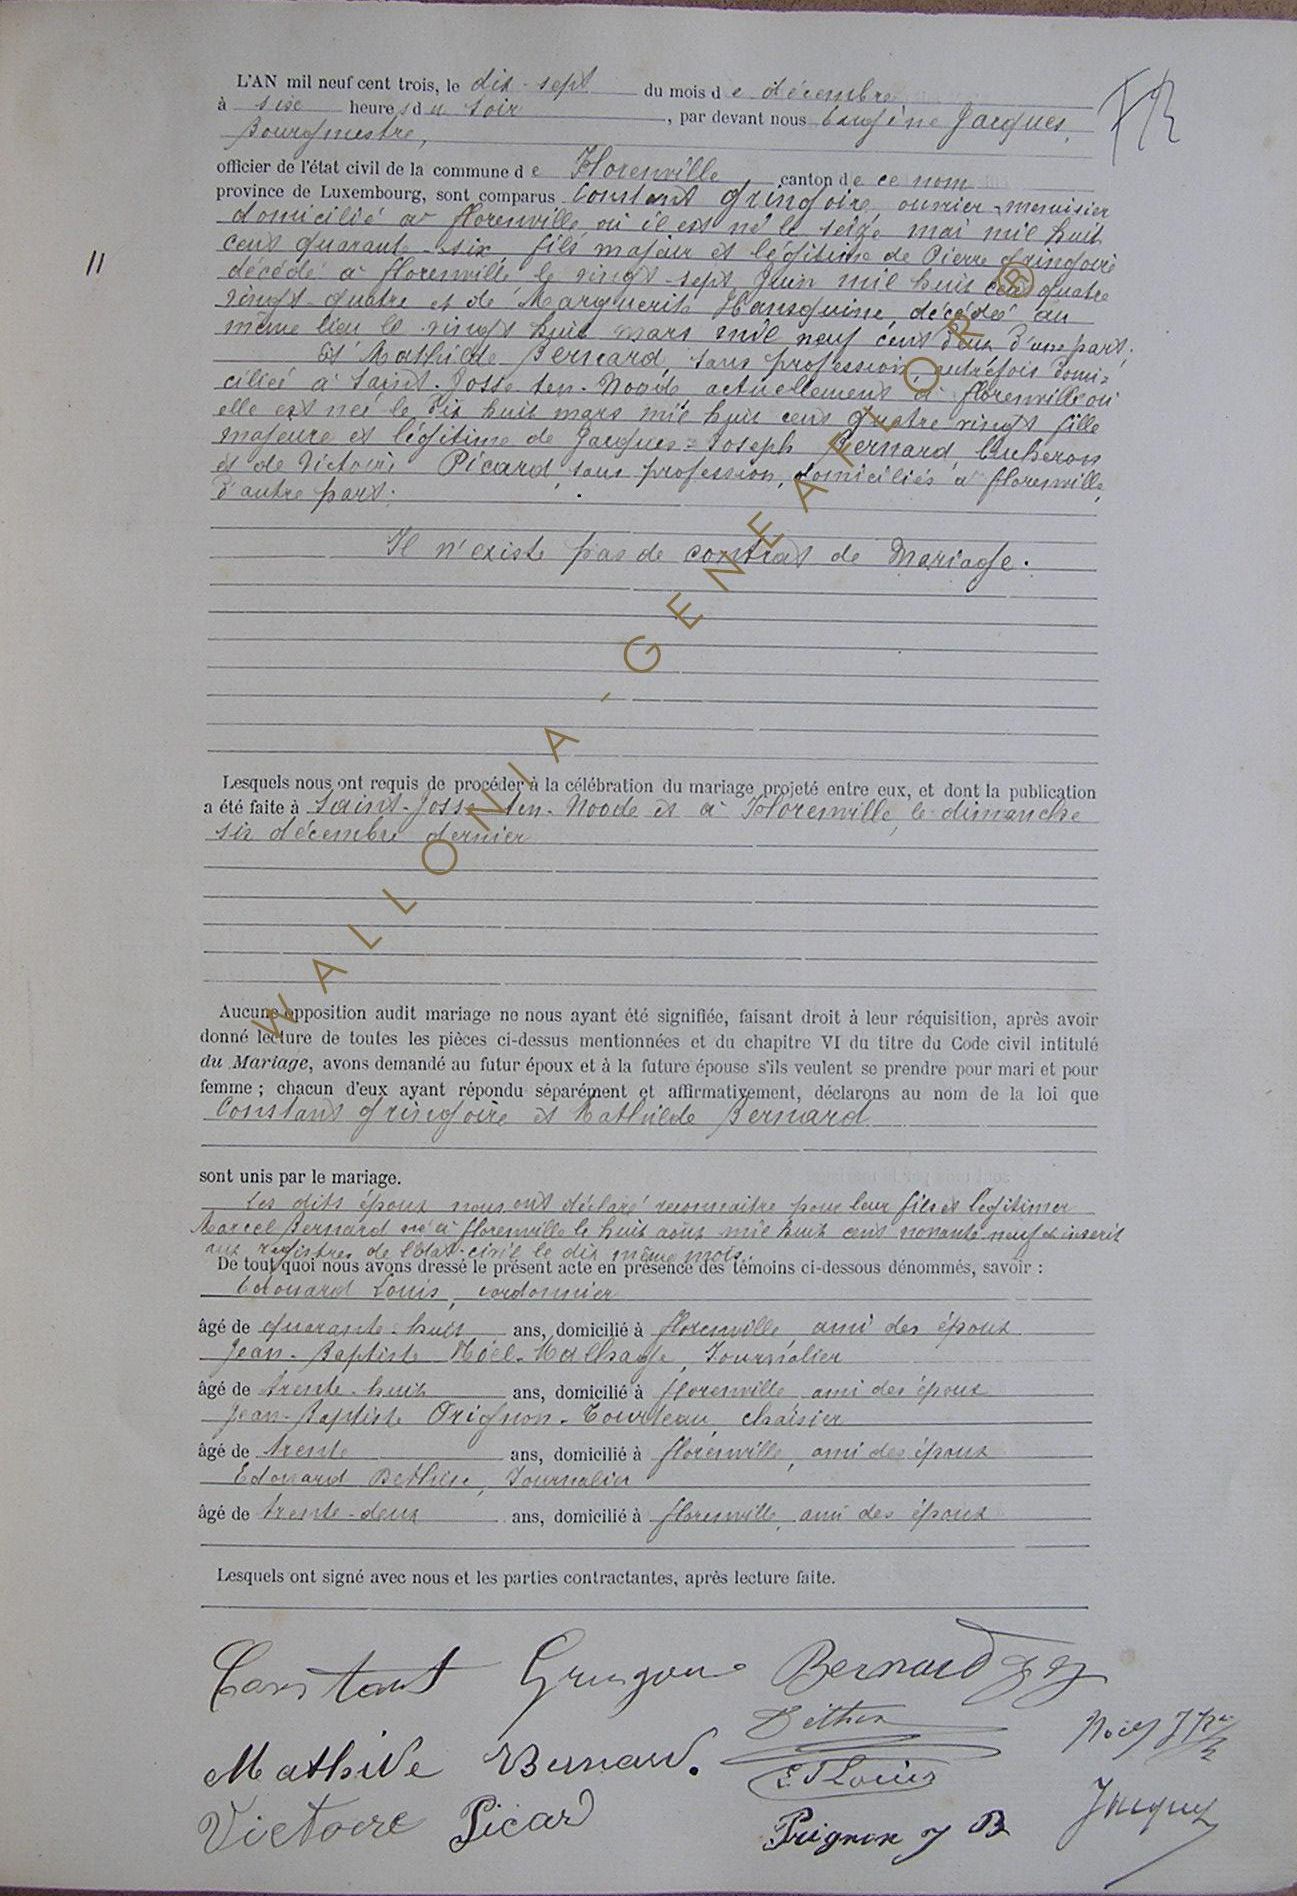 L'AN mil neuf cent trois, le dix-sept du mois de décembre
à six heures du soir, par devant nous Eugène Jacques,
Bourgmestre,
officier de l'état civil de la commune de Florenville canton de ce nom
province de Luxembourg, sont comparus Constant Gringoire, ouvrier-menuisier
domicilié à Florenville où il est né le seize mai mil huit
11
cent quarante-six, fils majeur et légitime de Pierre Gringoire
décédé à Florenville le vingt-sept juin mil huit cent quatre
vingt-quatre et de Marguerite Hansquine, décédée au
même lieu le vingt huit mars mil neuf cent deux d'une part.
Et Mathilde Bernard, sans profession, autrefois domi=
ciliée à Saint-Josse-ten-Noode actuellement à Florenville où
elle est née le dix huit mars mil huit cent quatre vingt fille
majeure et légitime de Jacques=Joseph Bernard, bucheron
et de Victoire Picard, sans profession, domiciliés à Florenville,
d'autre part.
Il n'existe pas de contrat de Mariage.
Lesquels nous ont requis de procéder à la célébration du mariage projeté entre eux, et dont la publication
a été faite à Saint-Josse-ten-Noode et à Florenville, le dimanche
six décembre dernier
Aucune opposition audit mariage ne nous ayant été signifiée, faisant droit à leur réquisition, après avoir
donné lecture de toutes les pièces ci-dessus mentionnées et du chapitre VI du titre du Code civil intitulé
du Mariage, avons demandé au futur époux et à la future épouse s'ils veulent se prendre pour mari et pour
femme ; chacun d'eux ayant répondu séparément et affirmativement, déclarons au nom de la loi que
Constant Gringoire et Mathilde Bernard
sont unis par le mariage.
Les dits époux nous ont déclaré reconnaitre pour leur fils et légitimer
Marcel Bernard né à Florenville le huit août mil huit cent nonante neuf et inscrit
aux registres de l'état-civil le dix même mois.
De tout quoi nous avons dressé le présent acte en présence des témoins ci-dessous dénommés, savoir :
Edouard Louis, cordonnier
âgé de quarante-huit ans, domicilié à Florenville, ami des époux
Jean-Baptiste Noël-Malhage, Journalier
âgé de trente-huit ans, domicilié à Florenville ami des époux
Jean-Baptiste Prignon-Tourteau, chaisier
âgé de trente ans, domicilié à Florenville, ami des époux
Edouard Dethise, Journalier
âgé de trente-deux ans, domicilié à Florenville, ami des époux
Lesquels ont signé avec nous et les parties contractantes, après lecture faite.
Constant Gringoire Bernard J J
Noël J Bte
Mathilde Bernard.
Ed Louis
Victoire Picard Prignon J B Jacques
WALLONIA - GENEAFLOR ®